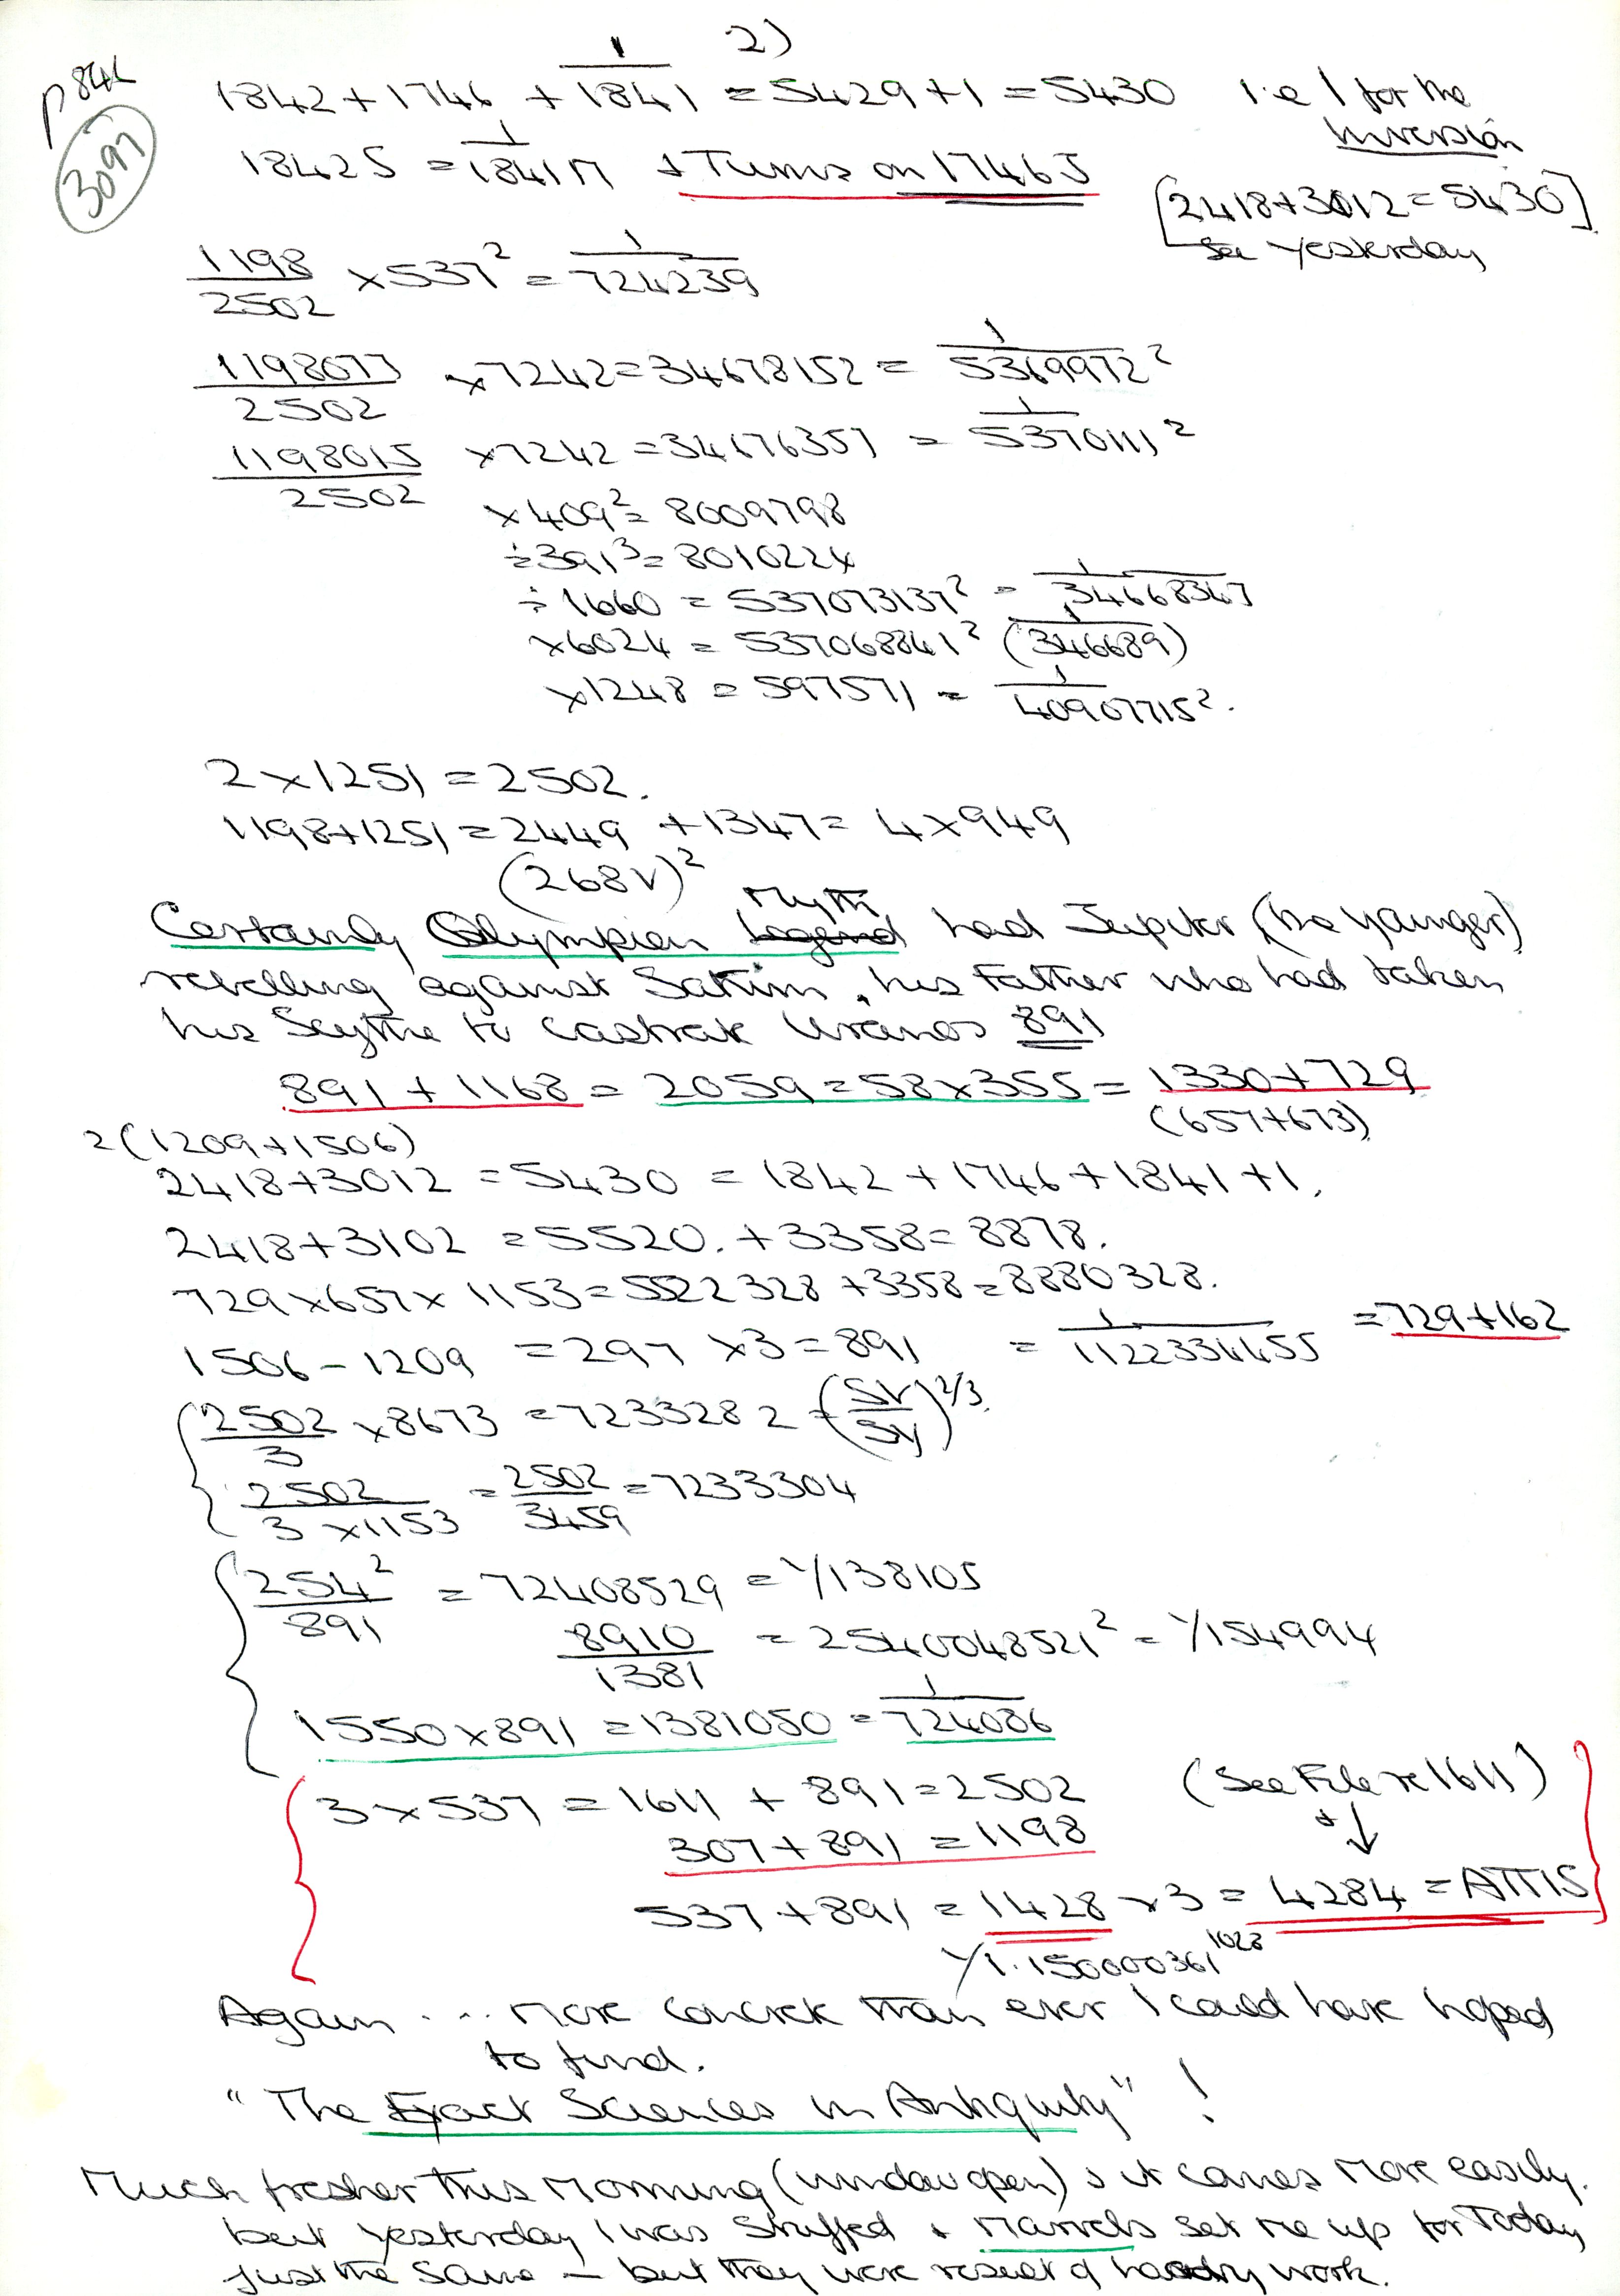 2)
p 84L
3097
1842 + 1746 + 1/1841 = 5429 + 1 = 5430 i.e 1 for the Inversion
1842S = 1/1841M + Turns on 1746J
[2418 + 3012 = 5430]
See yesterday
1198/2502 × 537² = 1/724239
1198077/2502 × 7242 = 34678152 = 1/5369972²
1198015/2502 × 7242 = 34676357 = 1/5370111²
× 409² = 8009798
÷ 391³ = 8010224
÷ 1660 = 537073137² = 1/34668367
× 6024 = 537068841² (1/346689)
× 1248 = 597571 = 1/40907715².
2 × 1251 = 2502.
1198 + 1251 = 2449 + 1347 = 4 × 949
(268V)²
Myth
Certainly Olympian Legend had Jupiter (the younger)
rebelling against Saturn, his Father who had taken
his Scythe to castrate Uranos 891
891 + 1168 = 2059 = 58 × 355 = 1330 + 729
(657 + 673)
2(1209 + 1506)
2418 + 3012 = 5430 = 1842 + 1746 + 1841 + 1.
2418 + 3102 = 5520. + 3358 = 8878.
729 × 657 × 1153 = 5522328 + 3358 = 8880328.
1506 - 1209 = 297 × 3 = 891 = 1/1122334455 = 729 + 162
2502/3 × 8673 = 7233282 = (SV/SY)^2/3.
2502/3 × 1153 = 2502/3459 = 7233304
254²/891 = 72408529 = 1/138105
8910/1381 = 2540048521² = 1/154994
1550 × 891 = 1381050 = 1/724086
3 × 537 = 1611 + 891 = 2502 (See File re 1611)
307 + 891 = 1198 + ↓
537 + 891 = 1428 × 3 = 4284 = ATTIS
1/1.150000361^1028
Again ... more concrete than ever I could have hoped
to find.
"The Exact Sciences in Antiquity" !
Much fresher this morning (window open) & it comes more easily.
but yesterday I was stuffed & marvels set me up for Today
just the same — but they were result of hard work.